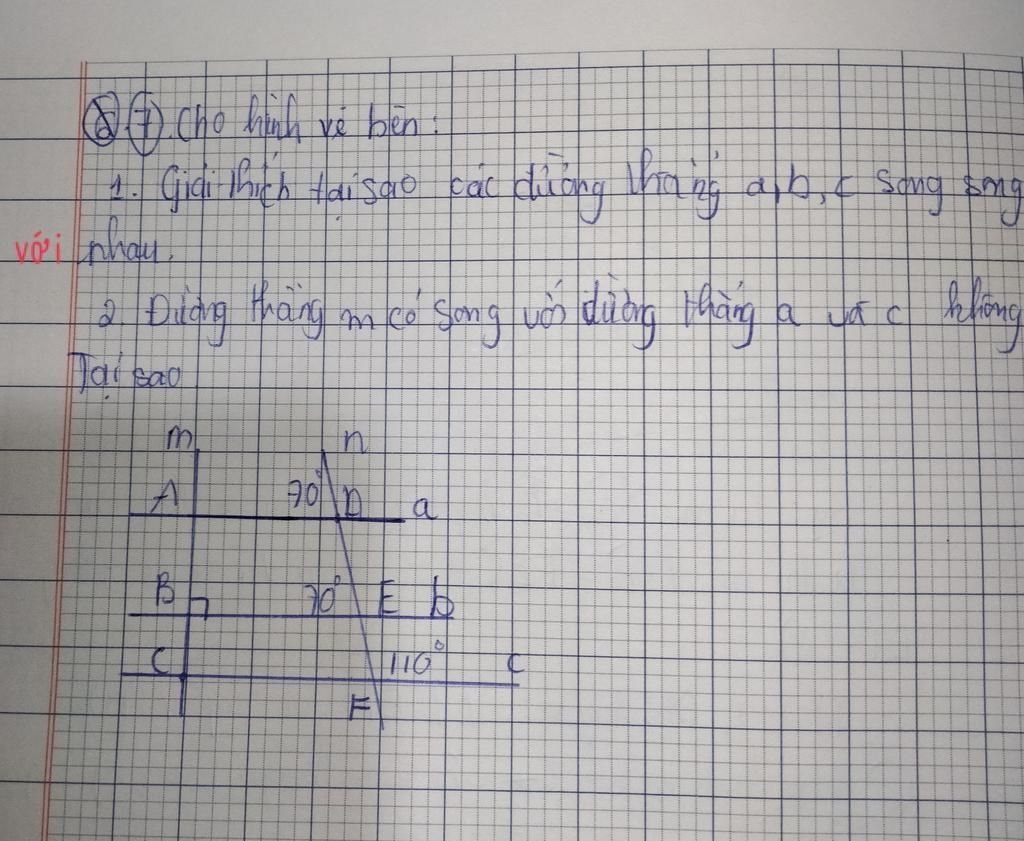 ⑦. Cho hình vẽ bên:
1. Giải thích tại sao các đường thẳng a, b, c song song
với nhau.
2. Đường thẳng m có song với đường thẳng a và c không
Tại sao
m n
A 70° D a
B 70° E b
C 110° c
F